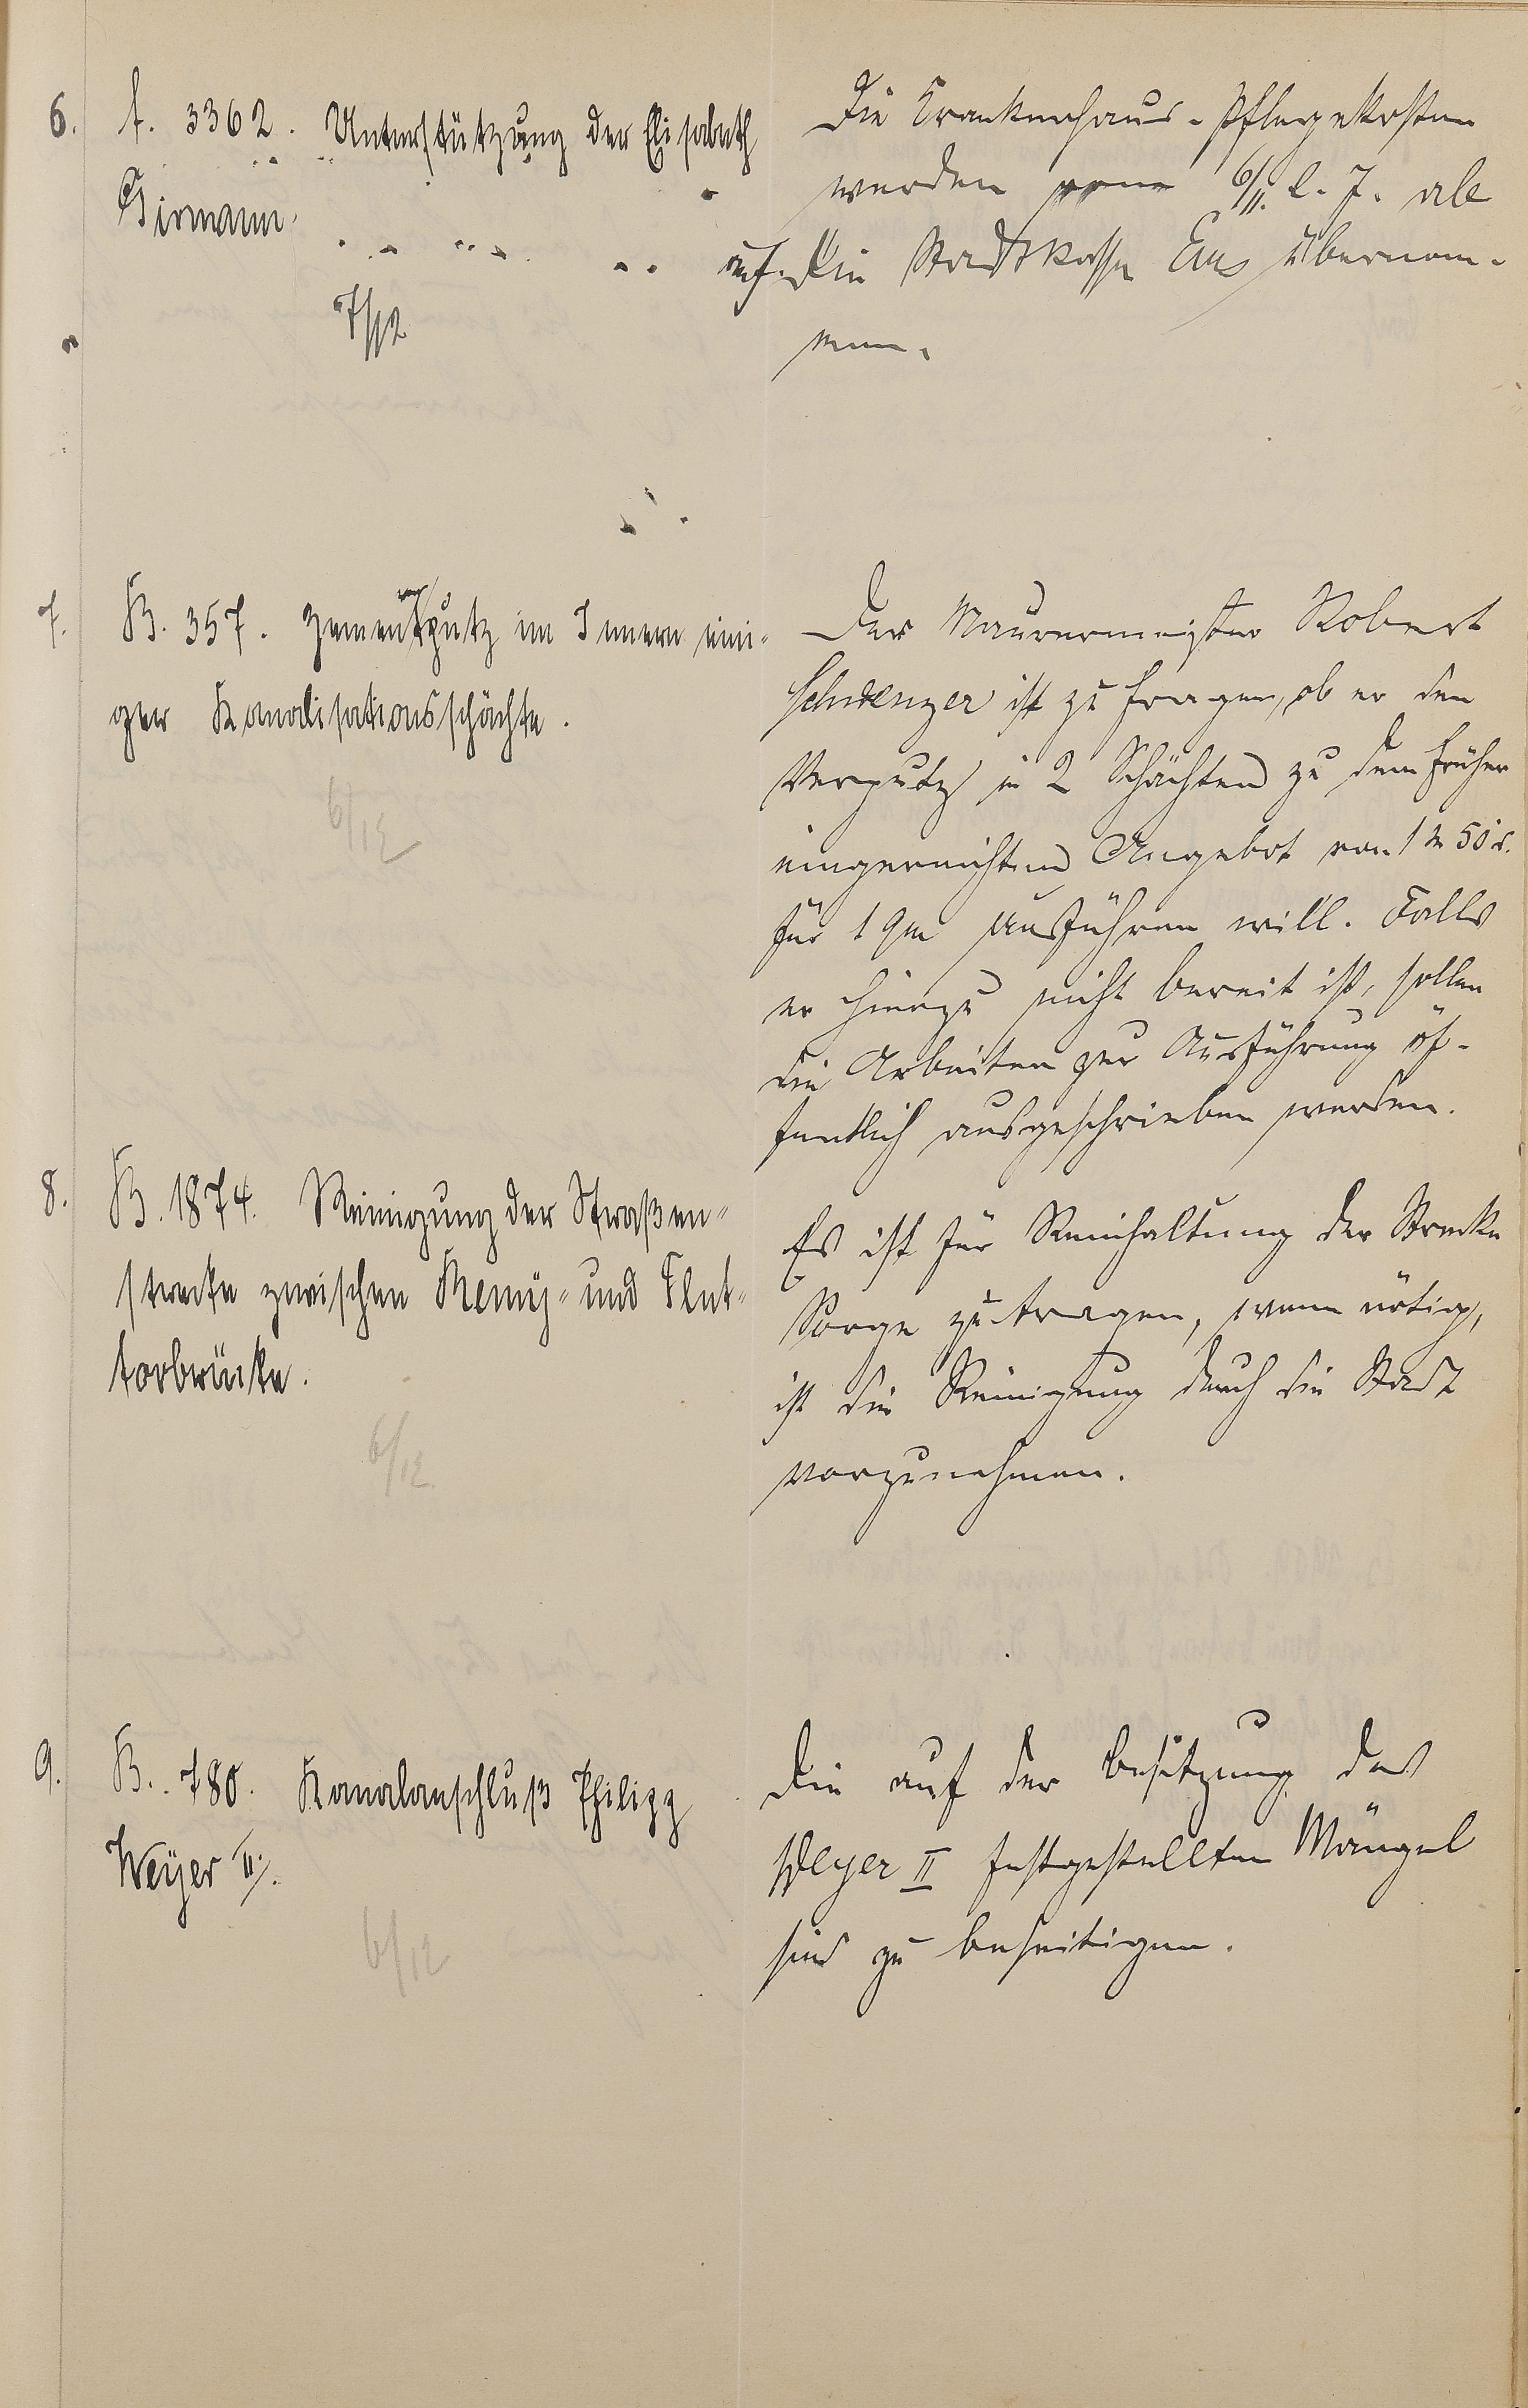 6.
A. 3362. Unterstützung der Elisabeth
Birmann.
7/12
Die Krankenhaus-Pflegekosten
werden vom 6/11. l. J. ab
auf die Stadtkasse Ems übernom-
men.
7.
B. 357. Zementverputz im Innern eini-
ger Kanalisationsschächte.
6/12
Der Maurermeister Robert
Schwenzer ist zu fragen, ob er den
Verputz in 2 Schächten zu dem früher
eingereichten Angebot von 1 M 50 S.
für 1 qm ausführen will. Falls
er hierzu nicht bereit ist, sollen
die Arbeiten zur Ausführung öf-
fentlich ausgeschrieben werden.
8.
B. 1874. Reinigung der Straßen-
strecke zwischen Remy- und Flut-
torbrücke.
6/12
Es ist für Reinhaltung der Strecke
Sorge zu tragen, wenn nötig,
ist die Reinigung durch die Stadt
vorzunehmen.
9.
B. 780. Kanalanschluß Philipp
Weyer II.
6/12
Die auf der Besitzung des
Weyer II festgestellten Mängel
sind zu beseitigen.